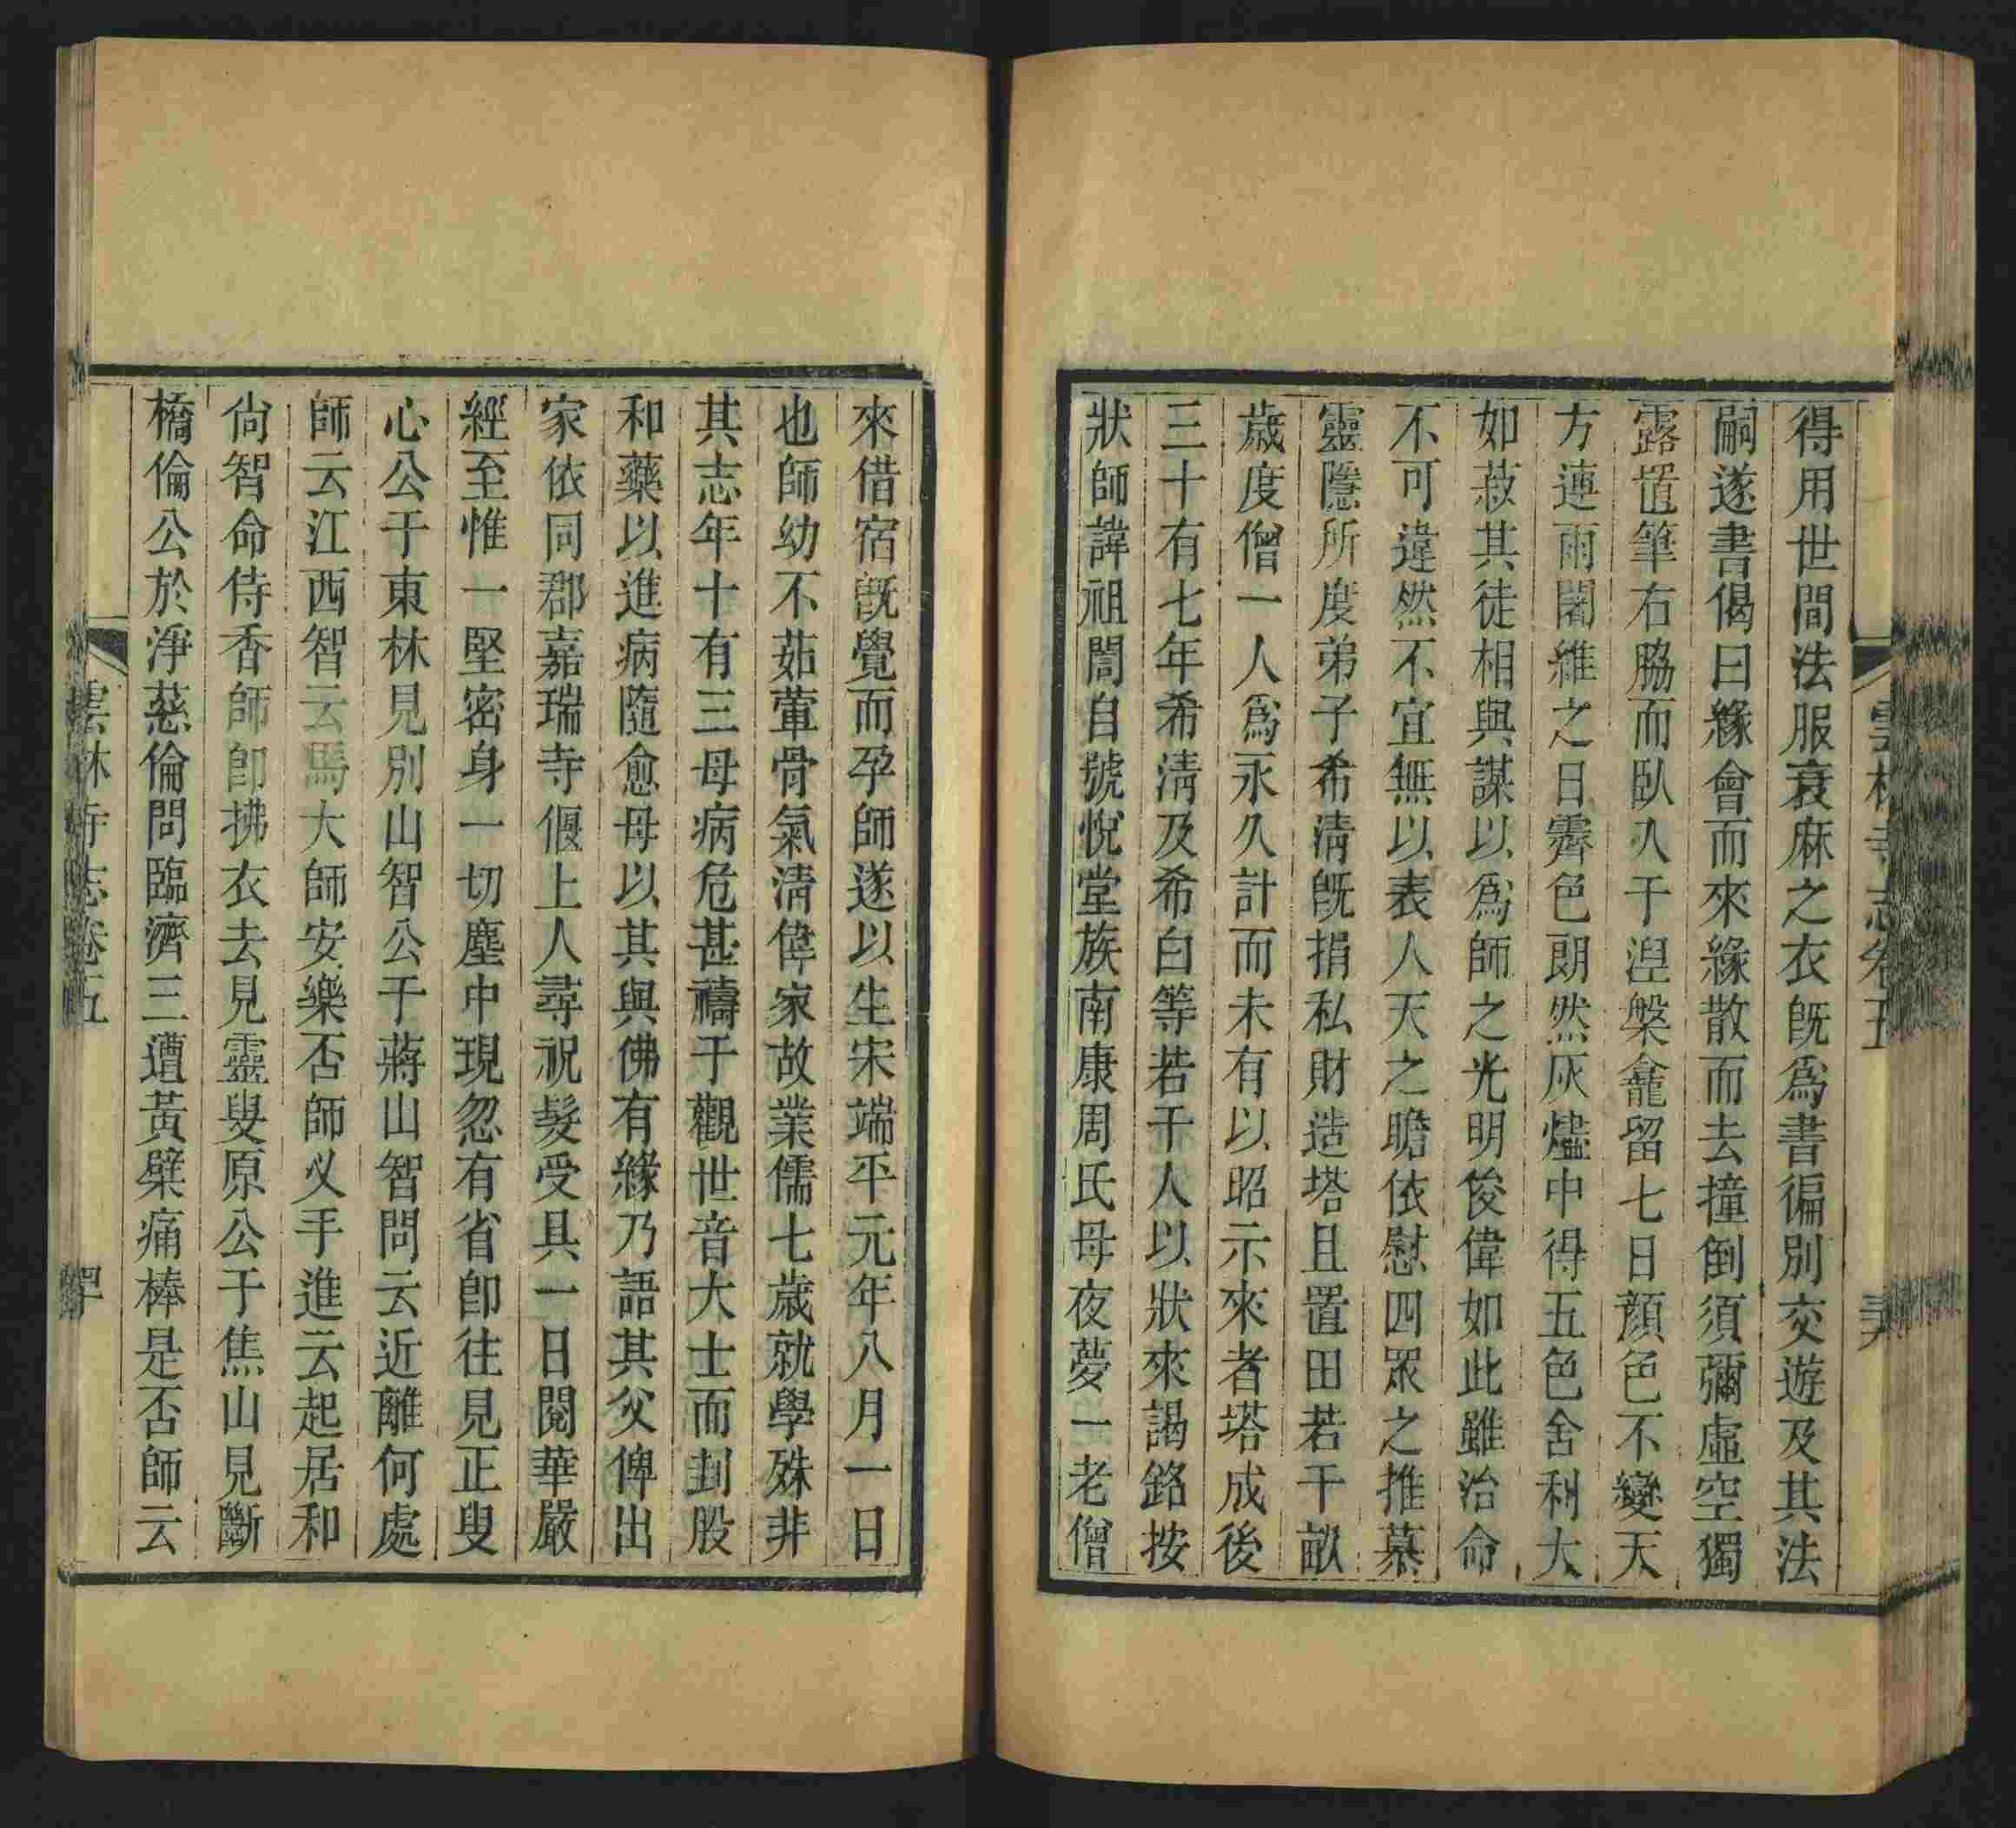 得用世間法服衰麻之衣旣爲書徧別交遊及其法
嗣遂書偈曰緣會而來緣散而去撞倒須彌虛空獨
露置筆右脇而臥入于湼槃龕留七日顏色不變天
方連雨闍維之日霽色朗然灰燼中得五色舍利大
如菽其徒相與謀以爲師之光明俊偉如此雖治命
不可違然不宜無以表人天之瞻依慰四眾之推慕
靈隱所度弟子希淸旣捐私財造塔且置田若干畝
歲度僧一人爲永久計而未有以昭示來者塔成後
三十有七年希淸及希白等若干人以狀來謁銘按
狀師諱祖誾自號悅堂族南康周氏母夜夢一老僧
來借宿旣覺而孕師遂以生宋端平元年八月一日
也師幼不茹葷骨氣淸偉家故業儒七歲就學殊非
其志年十有三母病危甚禱于觀世音大士而刲股
和藥以進病隨愈母以其與佛有緣乃語其父俾出
家依同郡嘉瑞寺偃上人尋祝髮受具一日閱華嚴
經至惟一堅密身一切塵中現忽有省卽往見正叟
心公于東林見別山智公于蔣山智問云近離何處
師云江西智云馬大師安樂否師义手進云起居和
尙智命侍香師卽拂衣去見靈叟原公于焦山見斷
橋倫公於淨慈倫問臨濟三遭黃檗痛棒是否師云
雲林寺志卷五